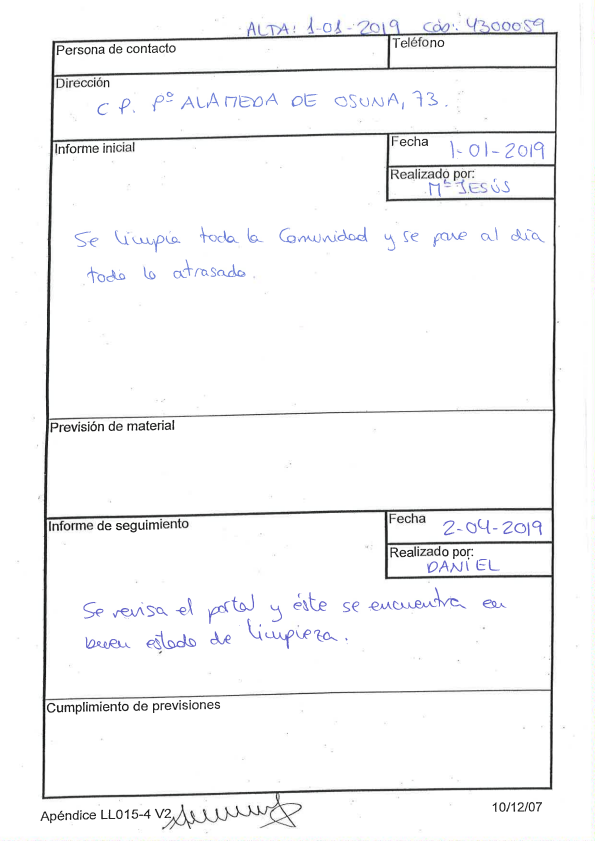 ALTA: 1-01-2019 CÓD: 4300059
Persona de contacto
Teléfono
Dirección
C P. Pº ALAMEDA DE OSUNA, 73.
Informe inicial
Fecha
1-01-2019
Realizado por:
Mª JESÚS
Se limpia toda la Comunidad y se pone al día
todo lo atrasado.
Previsión de material
Informe de seguimiento
Fecha
2-04-2019
Realizado por:
DANIEL
Se revisa el portal y éste se encuentra en
buen estado de limpieza.
Cumplimiento de previsiones
Apéndice LL015-4 V2
10/12/07